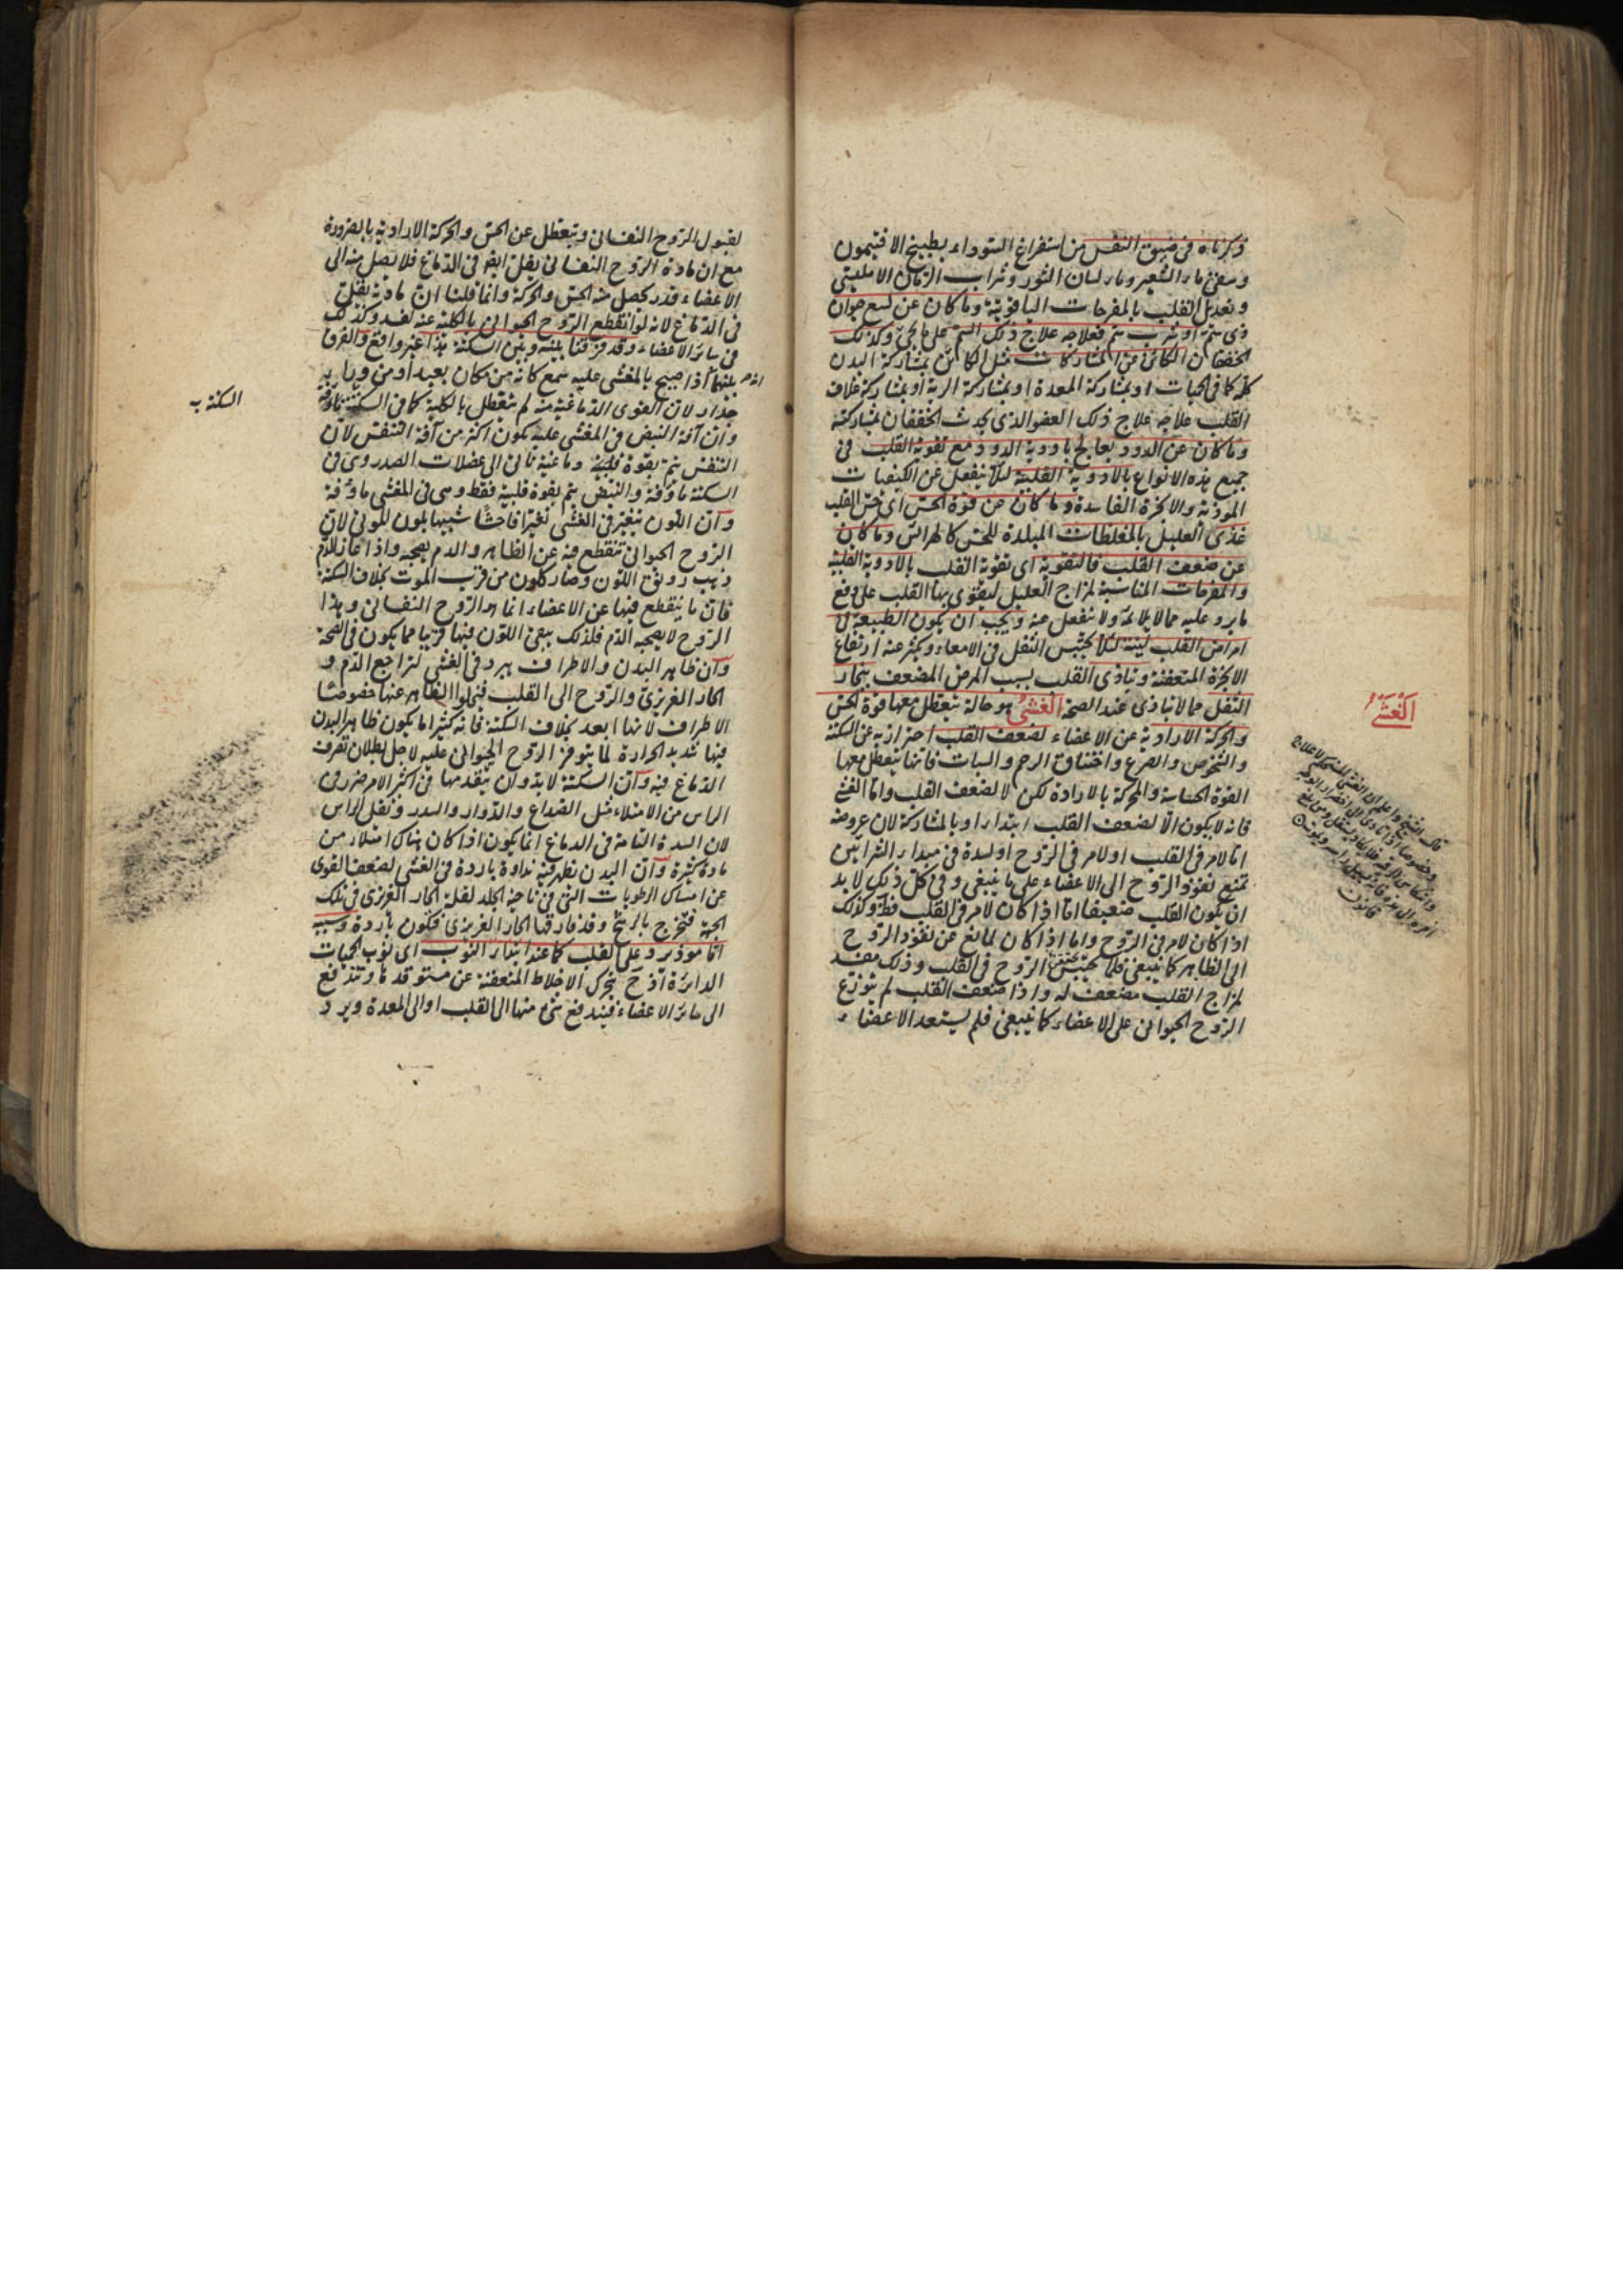 ذكرناه فى ضيق النفس من استفراغ السوداء بطبيخ الافتيمون
وسقى ماء الشعير وماء لسان الثور وشراب الرمان الامليسى
وتعديل القلب بالمفرحات الياقوتية وما كان عن لسع حيوان
ذى سم او شرب سم فعلاجه علاج ذلك السم على ما يجئ وكذلك
الخفقان الكائن عن المشاركات مثل الكائن بمشاركة البدن
كله كما فى الحميات او بمشاركة المعدة او بمشاركة الرية او بمشاركة غلاف
القلب علاجه علاج ذلك العضو الذى يحدث الخفقان بمشاركته
وما كان عن الدود يعالج بادوية الدود مع تقوية القلب فى
جميع هذه الانواع بالادوية القلبية لئلا ينفعل عن الكيفيات
الموذية والابخرة الفاسدة وما كان من قوة الحس اى حس القلب
غذى العليل بالمغلظات المبلدة للحس كالهرائس وما كان
عن ضعف القلب فالتقوية اى تقوية القلب بالادوية القلبية
والمفرحات المناسبة لمزاج العليل ليقوى بها القلب على دفع
ما يرد عليه مما لا يلائمه ولا ينفعل عنه ويجب ان يكون الطبيعة فى
امراض القلب لينة لئلا يحتبس الثفل فى الامعاء ويكثر عنه ارتفاع
الابخرة المتعفنة ويتاذى القلب بسبب المرض المضعف ببخار
الثفل مما لا يتاذى عند الصحة الغشى هو حالة يتعطل معها قوة الحس
والحركة الارادية عن الاعضاء لضعف القلب احترازبه عن السكتة
والشخوص والصرع واختناق الرحم والسبات فانها يتعطل معها
القوة الحساسة والمحركة بالارادة لكن لا لضعف القلب واما الغشى
فانه لا يكون الا لضعف القلب ابتداء او بالمشاركة لان عروضه
اما لامر فى القلب او لامر فى الروح او لسدة فى مبداء الشرائين
تمنع نفوذ الروح الى الاعضاء على ما ينبغى وفى كل ذلك لا بد
ان يكون القلب ضعيفا اما اذا كان لامر فى القلب فظ وكذلك
اذا كان لامر فى الروح واما اذا كان لمانع عن نفوذ الروح
الى الظاهر كما ينبغى فلا الروح فى القلب وذلك مفسد
لمزاج القلب مضعف له واذا ضعف القلب لم يتوزع
الروح الحيوانى على الاعضاء كما ينبغى فلم يستعد الاعضاء
الغشى
قال الشيخ واعلم ان الغشى المستحكم لا علاج له
وخصوصا اذا تادى الى اخضرار الوجه
قانون
لقبول الروح النفسانى ويتعطل عن الحس والحركة الارادية بالضرورة
مع ان مادة الروح النفسانى يقل ايض فى الدماغ فلا يصل منه الى
الاعضاء قدر يحصل منه الحس والحركة وانما قلنا ان مادته يقل
فى الدماغ لانه لو انقطع الروح الحيوانى بالكلية عنه لفسد وكذلك
فى سائر الاعضاء وقد فرقنا بينه وبين السكتة هذا غير واقع والفرق
بينهما انه اذا صيح بالمغشى عليه سمع كانه من مكان بعيد او من وراء
جدار لان القوى الدماغية منه لم يتعطل بالكلية كما فى السكتة
وان آفة النبض فى المغشى عليه يكون اكثر من آفة التنفس لان
التنفس يتم بقوة قلبية ودماغية تاتى الى عضلات الصدر وهى فى
السكتة ماؤفة والنبض يتم بقوة قلبية فقط وهى فى المغشى ماؤفة
وان اللون يتغير فى الغشى تغيرا فاحشا شبيها بلون الموتى لان
الروح الحيوانى تنقطع فيه عن الظاهر والدم يصحبه واذا غار الدم
ذهب رونق اللون وصار كلون من قرب الموت بخلاف السكتة
فان ما ينقطع فيها عن الاعضاء انما هو الروح النفسانى وهذا
الروح لا يصحبه الدم فلذلك يبقى اللون فيها قريبا مما يكون فى الصحة
وان ظاهر البدن والاطراف يبرد فى الغشى لتراجع الدم و
الحار الغريزى والروح الى القلب فيخلوا الظاهر عنها خصوصا
الاطراف لانها ابعد بخلاف السكتة فانه كثيرا ما يكون ظاهر البدن
فيها شديد الحرارة لما يتوفر الروح الحيوانى عليه لاجل بطلان تصرف
الدماغ فيه وان السكتة لا بد وان يتقدمها فى اكثر الامر ضرر فى
الراس من الامتلاء مثل الصداع والدوار والسدر وثقل الراس
لان السدة التامة فى الدماغ انما يكون اذا كان هناك امتلاء من
مادة كثيرة وان البدن يظهر فيه نداوة باردة فى الغشى لضعف القوى
عن امساك الرطوبات التى فى ناحية الجلد لقلة الحار الغريزى فى تلك
الجهة فتخرج بالرشح وقد فارقها الحار الغريزى فيكون باردة وسببه
اما موذ يرد على القلب كما عند ابتداء النوب اى نوب الحميات
الدائرة اذ ح يتحرك الاخلاط المتعفنة عن مستوقدها وتندفع
الى سائر الاعضاء فيندفع شئ منها الى القلب او الى المعدة ويرد
السكتة ب